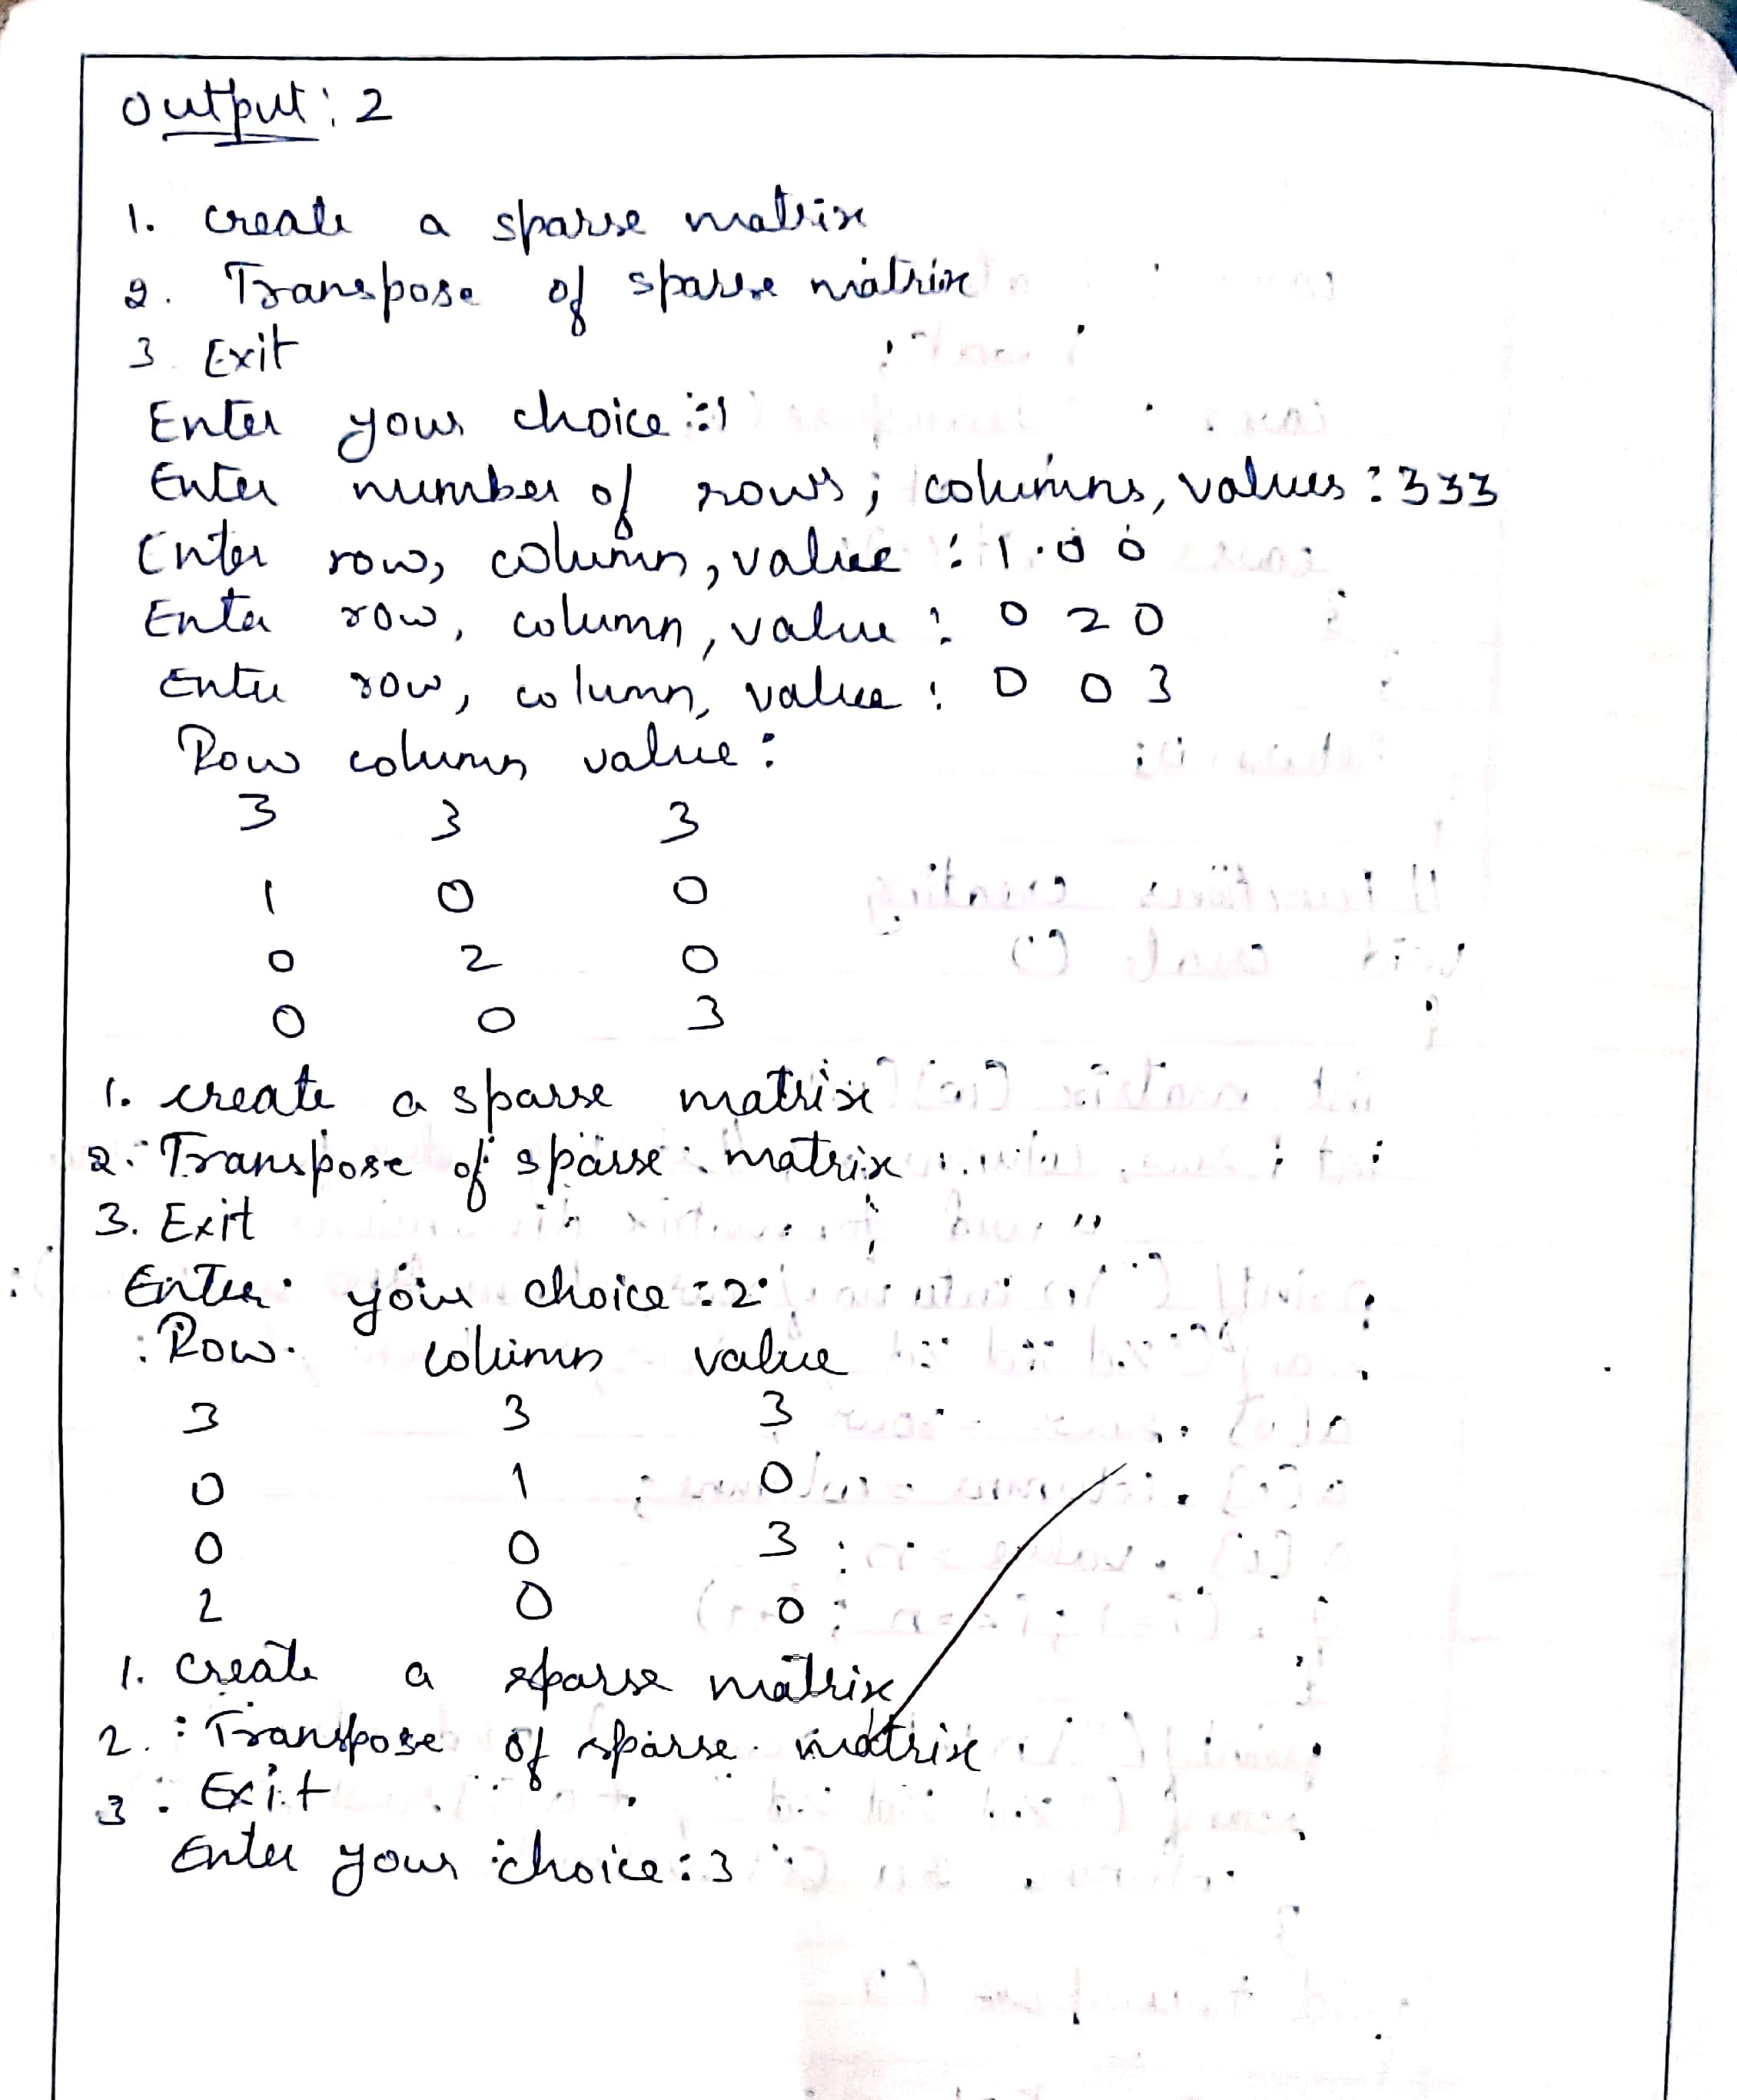 Output: 2
1. create a sparse matrix
2. Transpose of sparse matrix
3. Exit
Enter your choice :1
Enter number of rows, columns, values : 3 3 3
Enter row, column, value : 1 0 0
Enter row, column, value : 0 2 0
Enter row, column, value : 0 0 3
Row column value :
3 3 3
1 0 0
0 2 0
0 0 3
1. create a sparse matrix
2. Transpose of sparse matrix
3. Exit
Enter your choice : 2
Row column value
3 3 3
0 1 0
0 0 3
2 0 0
1. create a sparse matrix
2. Transpose of sparse matrix
3. Exit
Enter your choice : 3